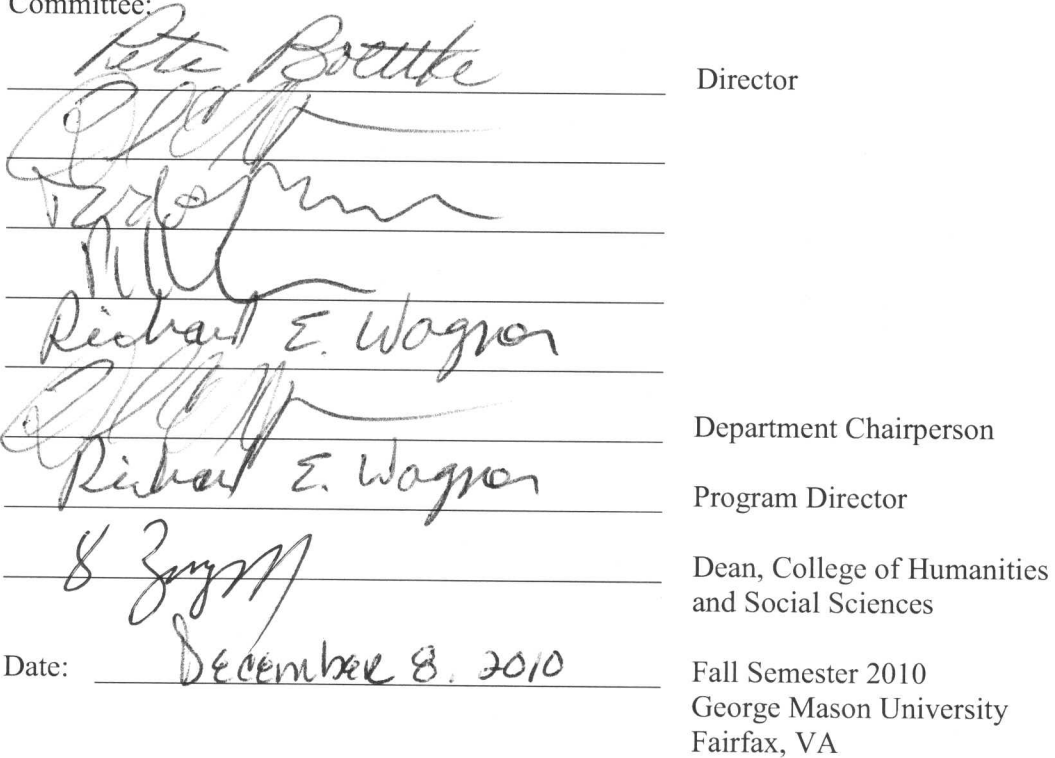 Committee:
Pete Boettke Director
Richard E. Wagner
Department Chairperson
Richard E. Wagner Program Director
Dean, College of Humanities
and Social Sciences
Date: December 8. 2010 Fall Semester 2010
George Mason University
Fairfax, VA